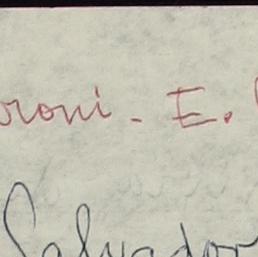 roni - E.
Salvador